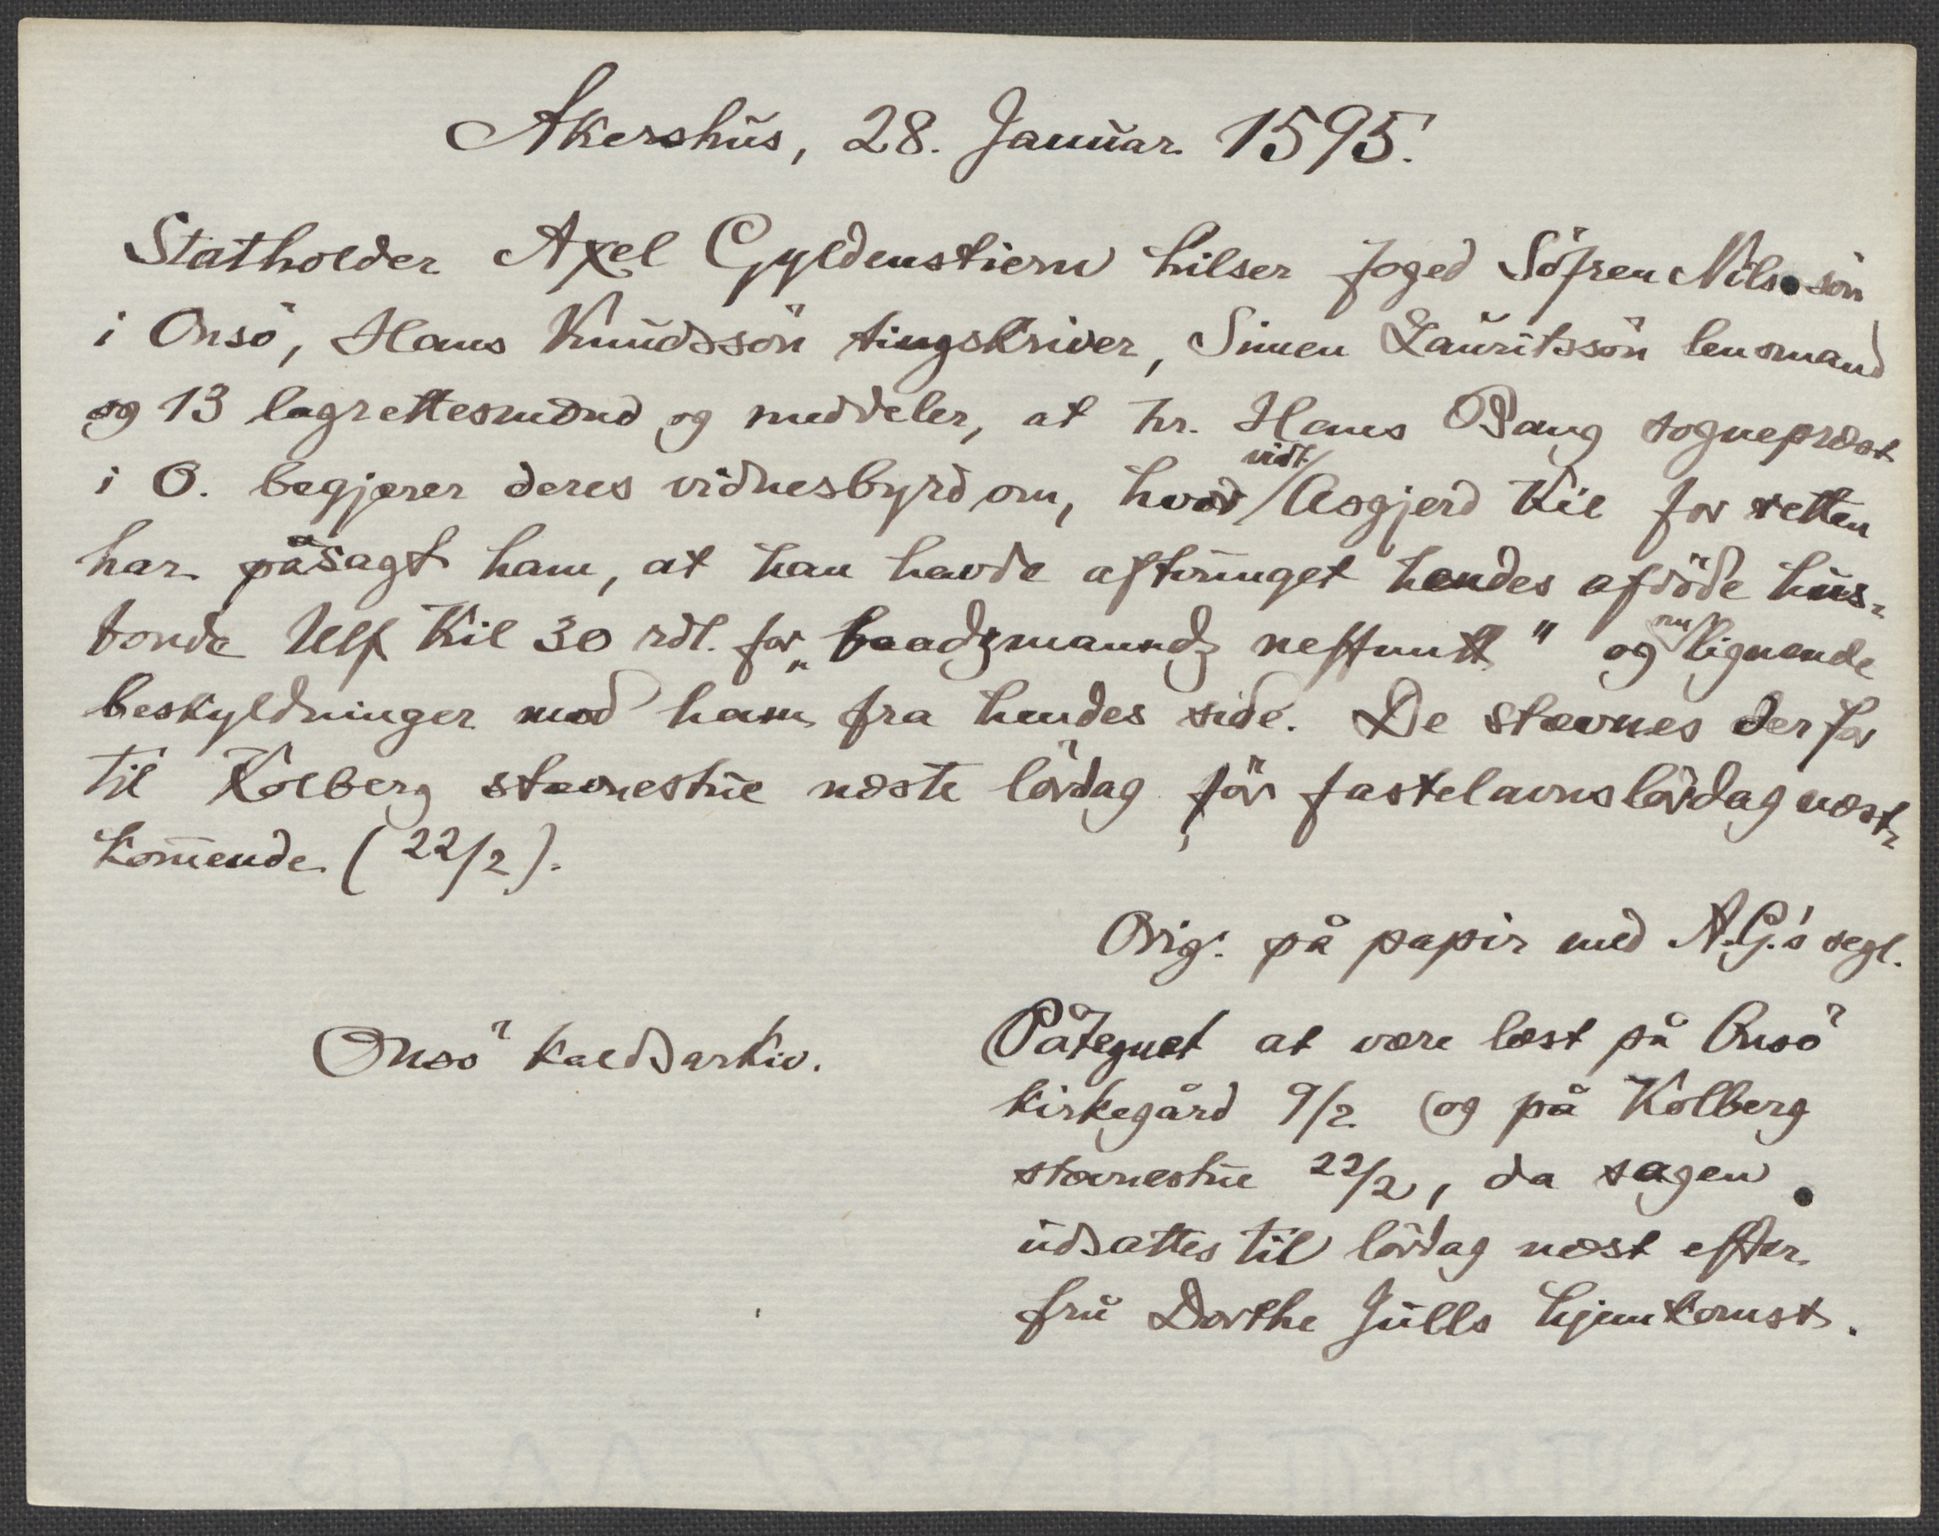 Akershus, 28. Januar 1595.
Statholder Axel Gyldenstiern hilser foged Söfren Nilssön
i Onsö, Hans Knudssön tingskriver, Simen Lauritssön lensmand
og 13 lagrettesmænd og meddeler, at hr. Hans Bang sognepræst
i O. begjærer deres vidnesbyrd om, hvad vidt Asgjerd Kil for retten
har påsagt ham, at han havde aftvunget hendes afdöde hus-
bonde Ulf Kil 30 rdl. for „baadzmanndz neffnutt" og nu lignende
beskyldninger mod ham fra hendes side. De stævnes derfor
til Kolberg stævnestue næste lördag för fastelavnslördag næst-
kommende (22/2).
Orig. på papir med A.G.'s segl.
Onsö kaldsarkiv.
Påtegnet at være læst på Onsö
kirkegård 9/2 og på Kolberg
stævnestue 22/2, da sagen
udsattes til lördag næst efter
fru Dorthe Julls hjemkomst.